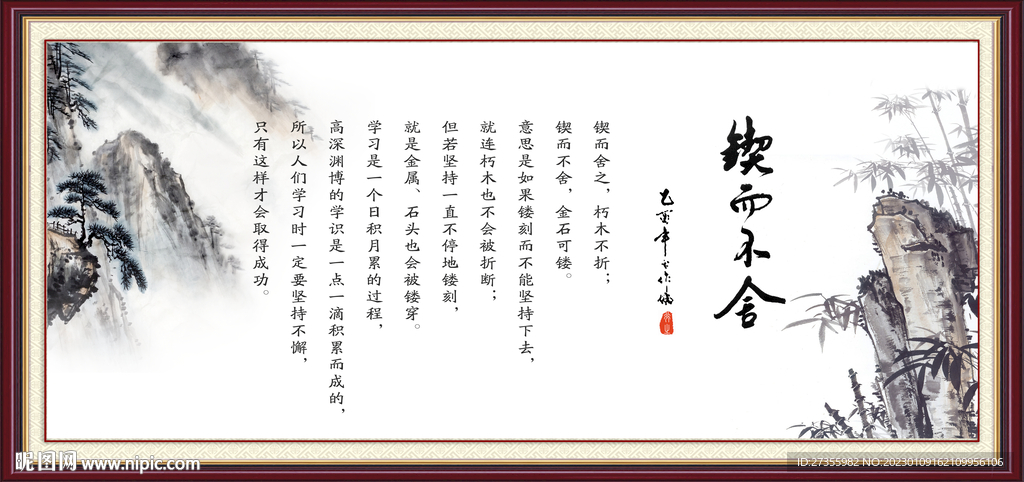 锲而不舍
锲而舍之，朽木不折；
锲而不舍，金石可镂。
意思是如果镂刻而不能坚持下去，
就连朽木也不会被折断；
但若坚持一直不停地镂刻，
就是金属、石头也会被镂穿。
学习是一个日积月累的过程，
高深渊博的学识是一点一滴积累而成的，
所以人们学习时一定要坚持不懈，
只有这样才会取得成功。
昵图网 www.nipic.com
ID:27355982 NO:20230109162109956106